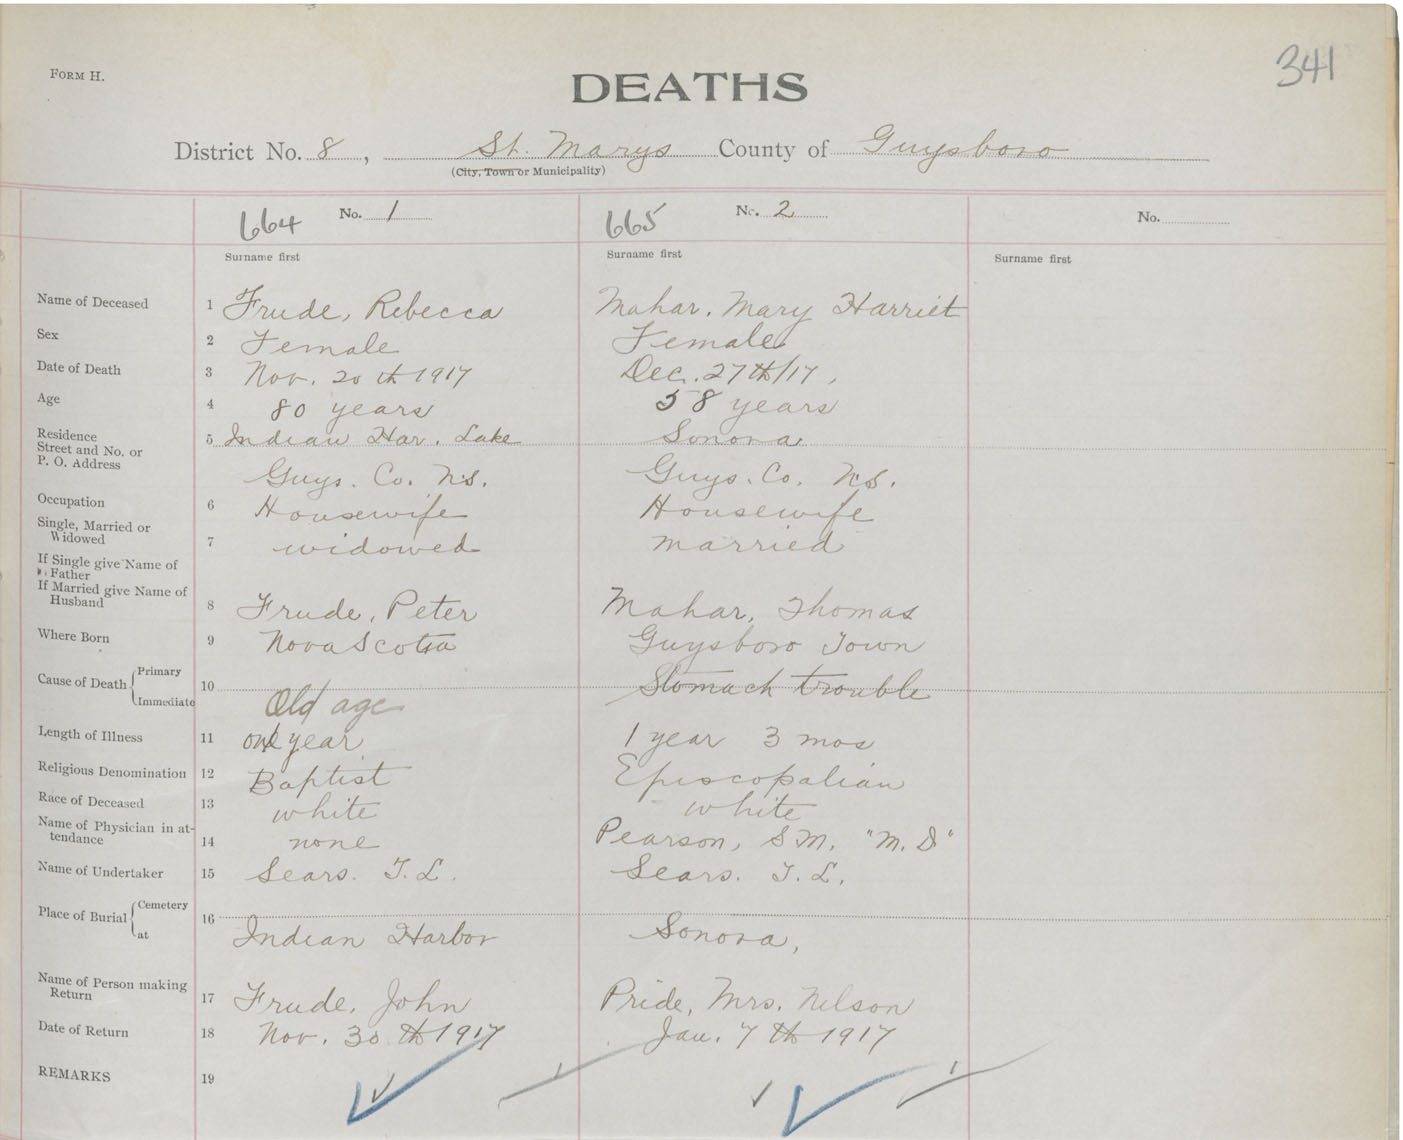 341
FORM H.
DEATHS
District No. 8, St. Marys County of Guysboro
(City, Town or Municipality)
664 No. 1 665 No. 2 No.
Surname first Surname first Surname first
Name of Deceased 1 Frude, Rebecca Mahar, Mary Harriet
Sex 2 Female Female
Date of Death 3 Nov. 20th 1917 Dec. 27th/17,
Age 4 80 years 58 years
Residence 5 Indian Har. Lake Sonora
Street and No. or
P. O. Address Guys. Co. N.S. Guys. Co. N.S.
Occupation 6 Housewife Housewife
Single, Married or
Widowed 7 widowed married
If Single give Name of
Father
If Married give Name of
Husband 8 Frude, Peter Mahar, Thomas
Where Born 9 Nova Scotia Guysboro Town
Cause of Death Primary
Immediate 10 Old age Stomach trouble
Length of Illness 11 one year 1 year 3 mos
Religious Denomination 12 Baptist Episcopalian
Race of Deceased 13 white white
Name of Physician in at-
tendance 14 none Pearson, S.M. "M.D"
Name of Undertaker 15 Sears. T. L. Sears. T. L.
Place of Burial Cemetery 16
at Indian Harbor Sonora,
Name of Person making
Return 17 Frude, John Pride, Mrs. Nelson
Date of Return 18 Nov. 30th 1917 Jan. 7th 1917
REMARKS 19